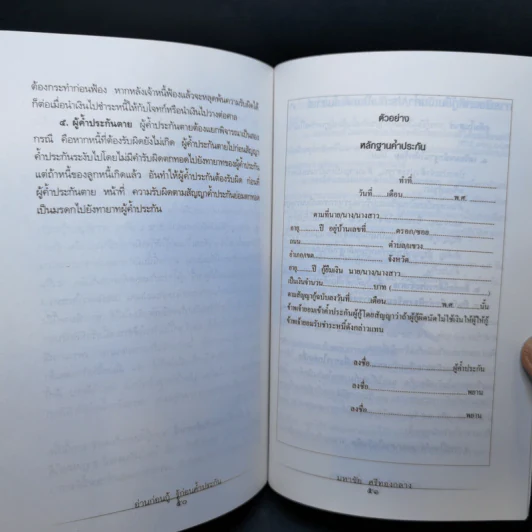 ต้องกระทำก่อนฟ้อง หากหลังเจ้าหนี้ฟ้องแล้วจะหลุดพ้นความรับผิดได้
ก็ต่อเมื่อนำเงินไปชำระหนี้ให้กับโจทก์หรือนำเงินไปวางต่อศาล
๕. ผู้ค้ำประกันตาย ผู้ค้ำประกันตายต้องแยกพิจารณาเป็นสอง
กรณี คือหากหนี้ที่ต้องรับผิดยังไม่เกิด ผู้ค้ำประกันตายไปก่อนสัญญา
ค้ำประกันระงับไปโดยไม่มีค่ารับผิดตกทอดไปยังทายาทของผู้ค้ำประกัน
แต่ถ้าหนี้ของลูกหนี้เกิดแล้ว อันทำให้ผู้ค้ำประกันต้องรับผิด ก่อนที่
ผู้ค้ำประกันตาย หน้าที่ ความรับผิดตามสัญญาค้ำประกันย่อมตกทอด
เป็นมรดกไปยังทายาทผู้ค้ำประกัน
อ่านก่อนกู้ รู้ก่อนค้ำประกัน
ตัวอย่าง
หลักฐานค้ำประกัน
ทำที่
วันที่.....เดือน..................พ.ศ.
ตามที่นาย/นาง/นางสาว
อายุ........ปี อยู่บ้านเลขที่............ตรอก/ซอย
ถนน..............................ตำบล/แขวง
อำเภอ/เขต........................จังหวัด
อายุ......ปี ผู้ยืมเงิน นาย/นาง/นางสาว
เป็นเงินจำนวน....................บาท (
ตามสัญญากู้ฉบับลงวันที่......เดือน..................พ.ศ. ........นั้น
ข้าพเจ้ายอมเข้าค้ำประกันผู้กู้โดยสัญญาว่าถ้าผู้กู้ผิดนัดไม่ใช้เงินให้ผู้ให้กู้
ข้าพเจ้ายอมรับชำระหนี้ดังกล่าวแทน
ลงชื่อ..............................ผู้ค้ำประกัน
ลงชื่อ..............................พยาน
ลงชื่อ..............................พยาน